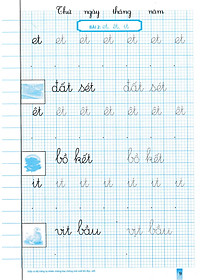 Thứ ngày tháng năm
et êt it
et et et et et et et
đất sét đất sét
êt êt êt êt êt êt êt
bồ kết bồ kết
it it it it it it it
vịt bầu vịt bầu